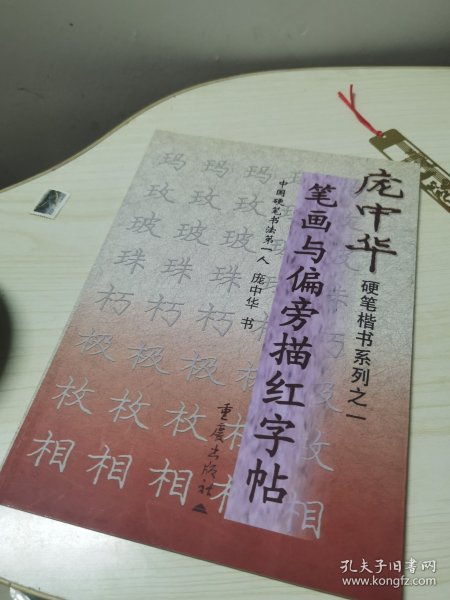 庞中华
硬笔楷书系列之一
笔画与偏旁描红字帖
中国硬笔书法第一人 庞中华 书
重庆出版社
玛 玛 玛
玫 玫 玫
玻 玻 玻
珠 珠 珠
朽 朽 朽
极 极 极
枚 枚 枚
相 相 相 相 相
孔夫子旧书网
www.kongfz.com